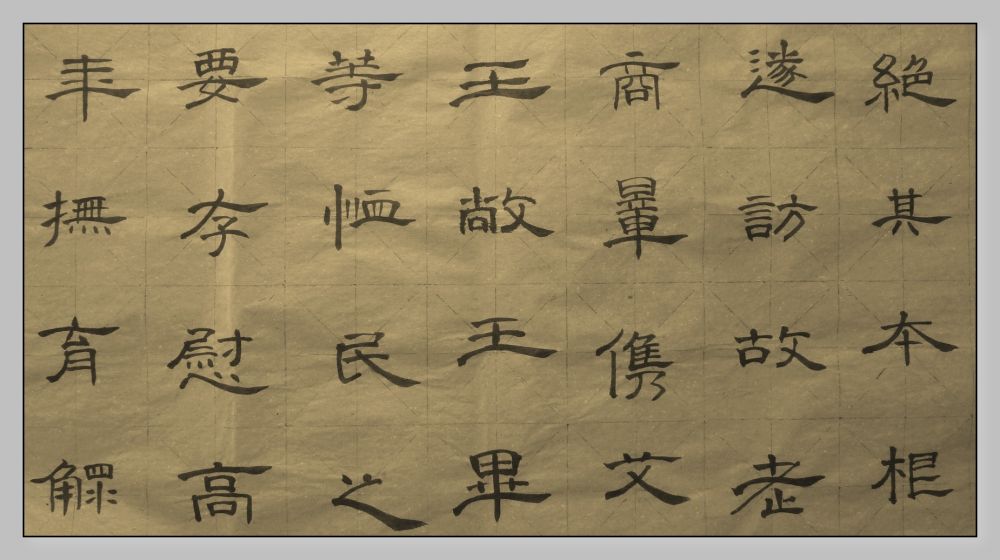 絶其本根
遂訪故老
商量儁艾
王敞王畢
等恤民之
要存慰高
年撫育鰥